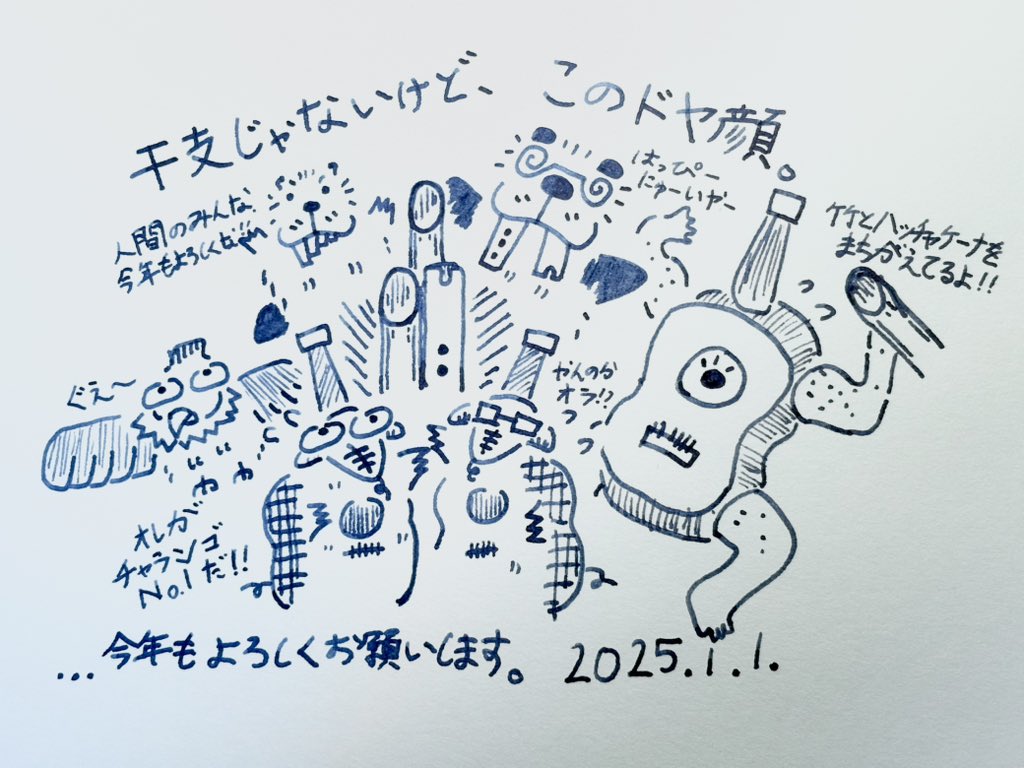 干支じゃないけど、このドヤ顔。
人間のみんな
今年もよろしくじゃん
はっぴー
にゅーいやー
竹とハッチャケーナを
まちがえてるよ!!
ぐえ〜
やんのか
オラ!?
オレが
チャランゴ
No.1だ!!
...今年もよろしくお願いします。 2025.1.1.